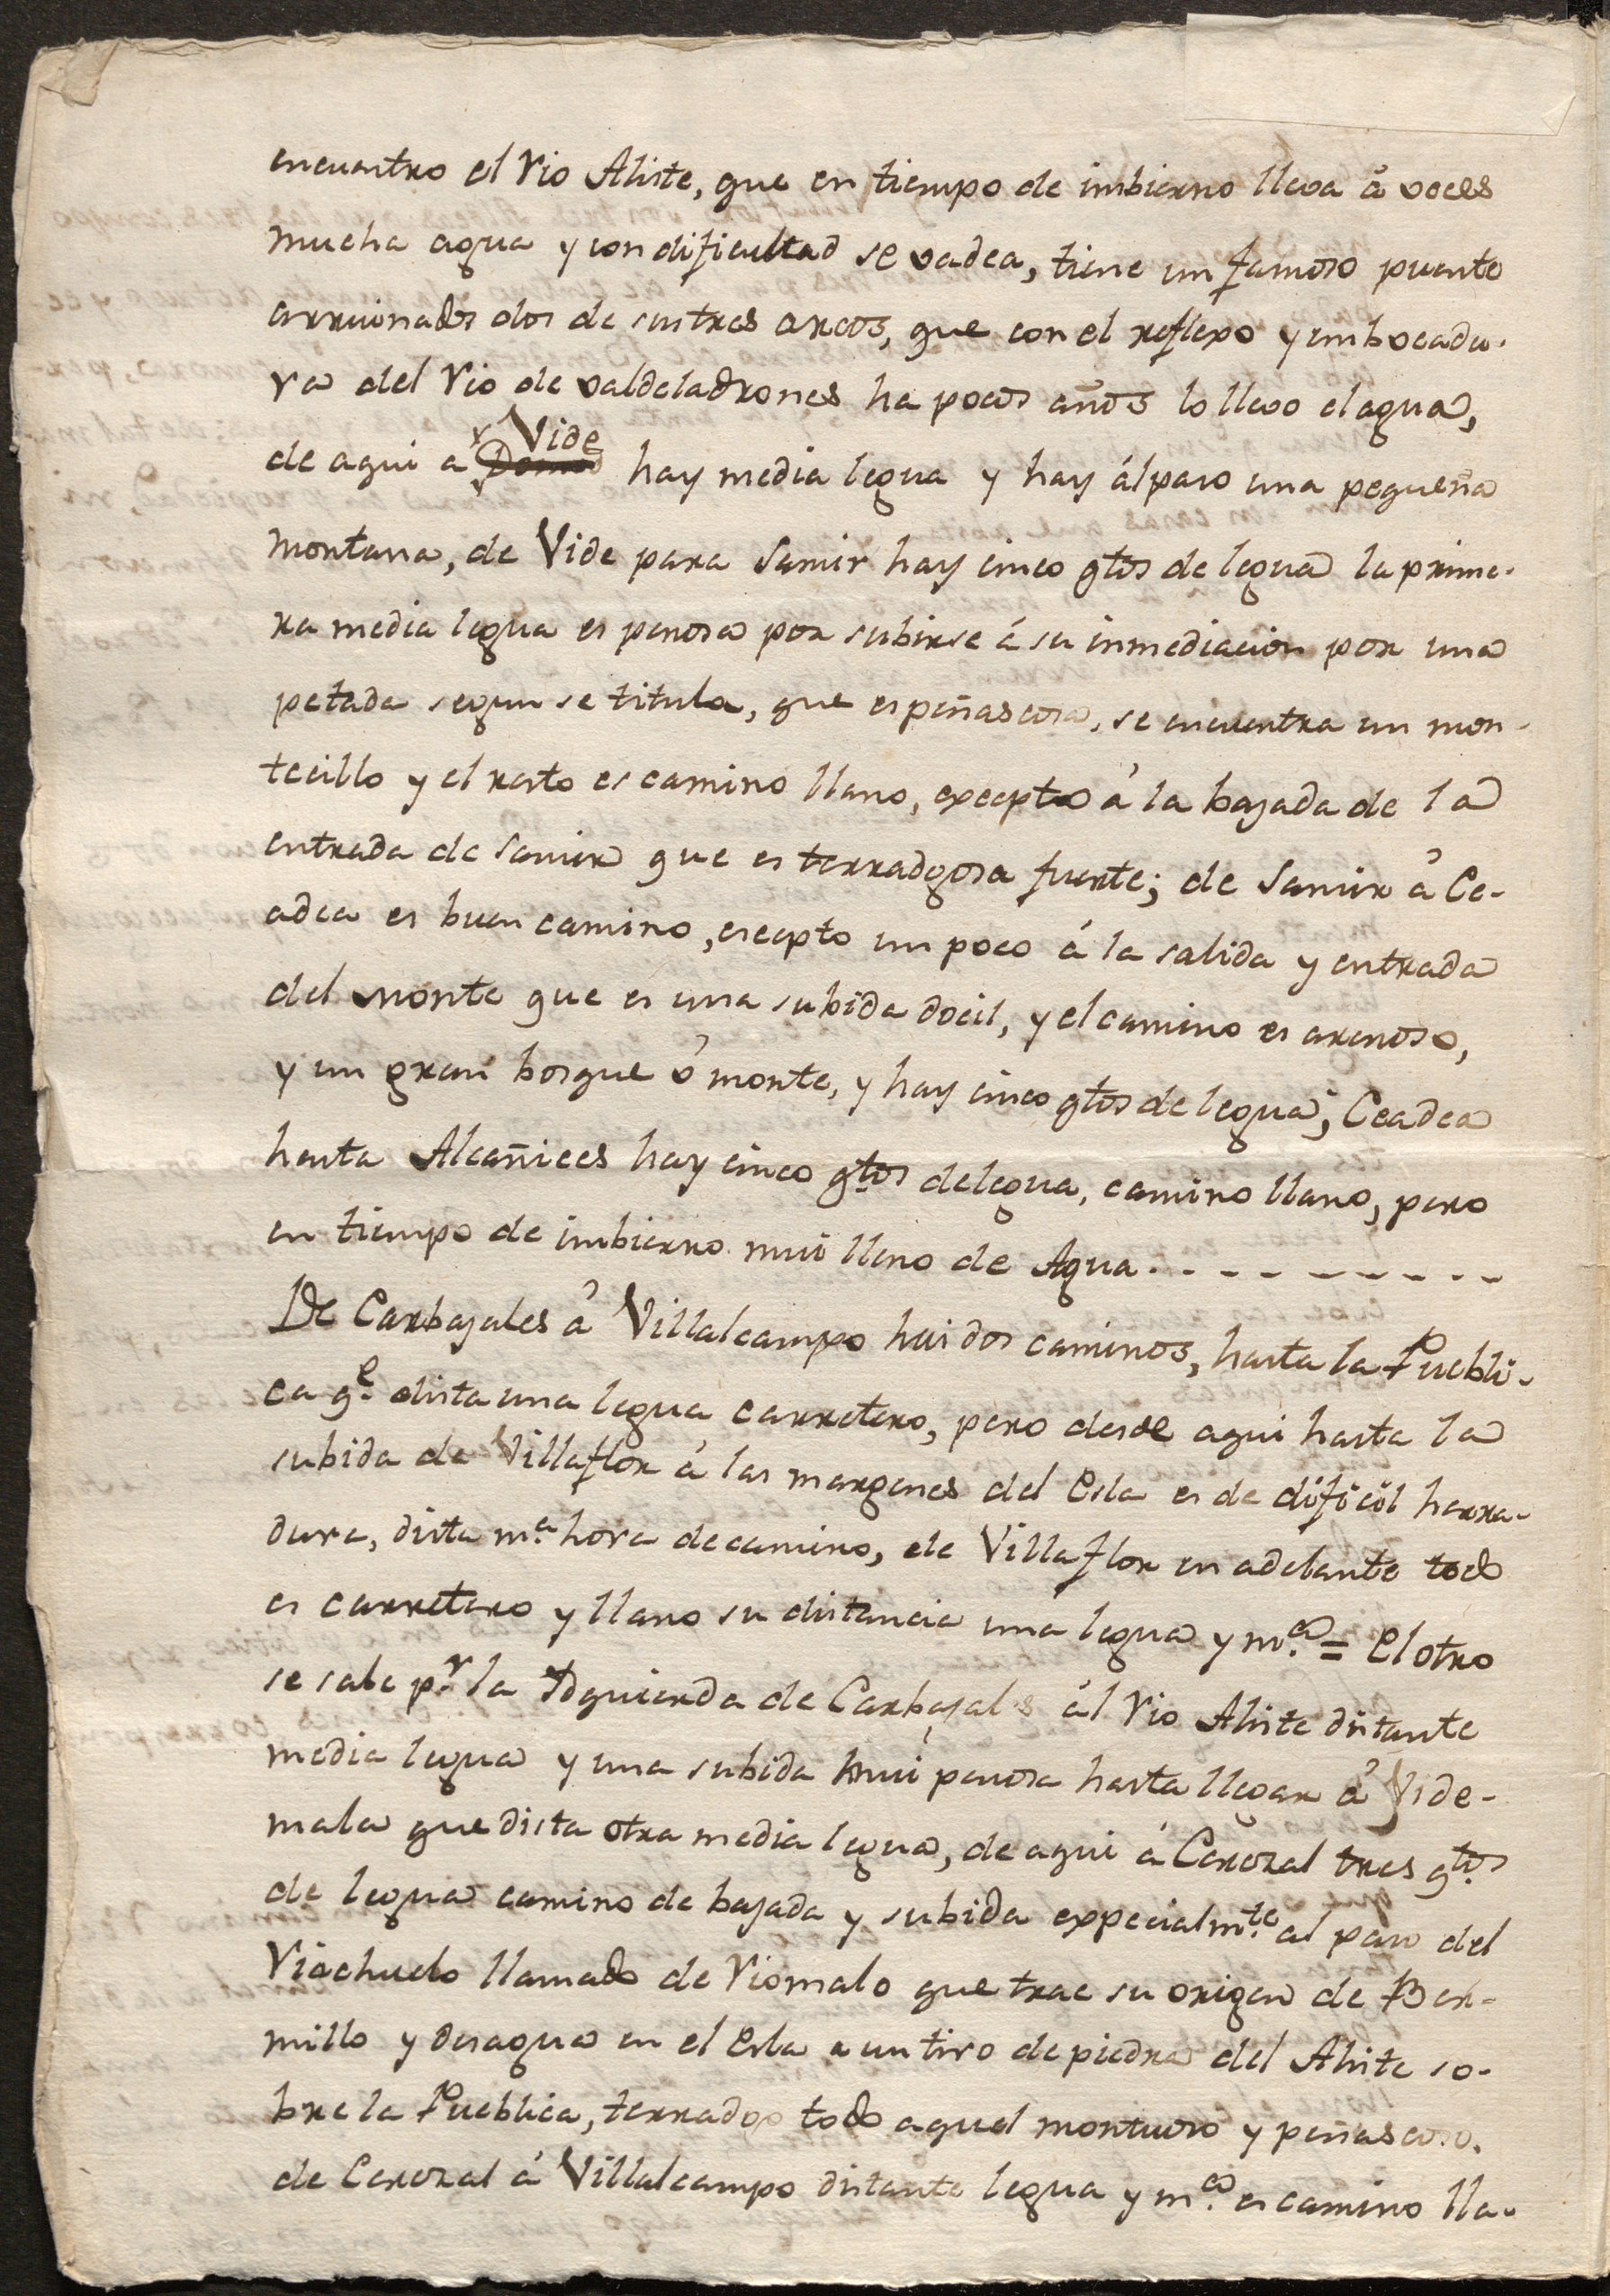 encuentro el Rio Aliste, que en tiempo de imbierno lleva á veces
mucha agua y con dificultad se vadea, tiene un famoso puente
arruinados dos de sus tres arcos, que con el reflexo y embocadu-
ra del Rio de valdeladrones ha pocos años lo llevo el agua,
de aqui a Vide hay media legua y hay ál paso una pequeña
montana, de Vide para Samir hay cinco qtos de legua la prime-
ra media legua es penosa por subirse á su inmediacion por una
petada segun se titula, que es peñascosa, se encuentra un mon-
tecillo y el resto es camino llano, excepto á la bajada de la
entrada de Samir que es terradgosa fuerte; de Samir á Ce-
adea es buen camino, esepto un poco á la salida y entrada
del monte que es una subida docil, y el camino es arenoso,
y un gran bosque ó monte, y hay cinco qtos de legua; Ceadea
hasta Alcañices hay cinco qtos de legua, camino llano, pero
en tiempo de imbierno mui lleno de Agua. - - - - - - - - -
De Carbajales á Villalcampo hai dos caminos, hasta la Puebli-
ca qe. dista una legua carretero, pero desde aqui hasta la
subida de Villaflor á las margenes del Esla es de dificil herra-
dura, dista ma. hora de camino, de Villaflor en adelante todo
es carretero y llano su distancia una legua y ma. = El otro
se sale pr. la Izquierda de Carbajales ál Rio Aliste distante
media legua y una subida mui penosa hasta llegar á Vide-
mala que dista otra media legua, de aqui á Cerezal tres qtos
de legua camino de bajada y subida expecialmte. al paso del
Riachuelo llamado de Riomalo que trae su origen de Ber-
millo y desagua en el Esla a un tiro de piedra del Aliste so-
bre la Pueblica, terradgo todo aquel montuoso y peñascoso.
de Cerezal á Villalcampo distante legua y ma. es camino lla-